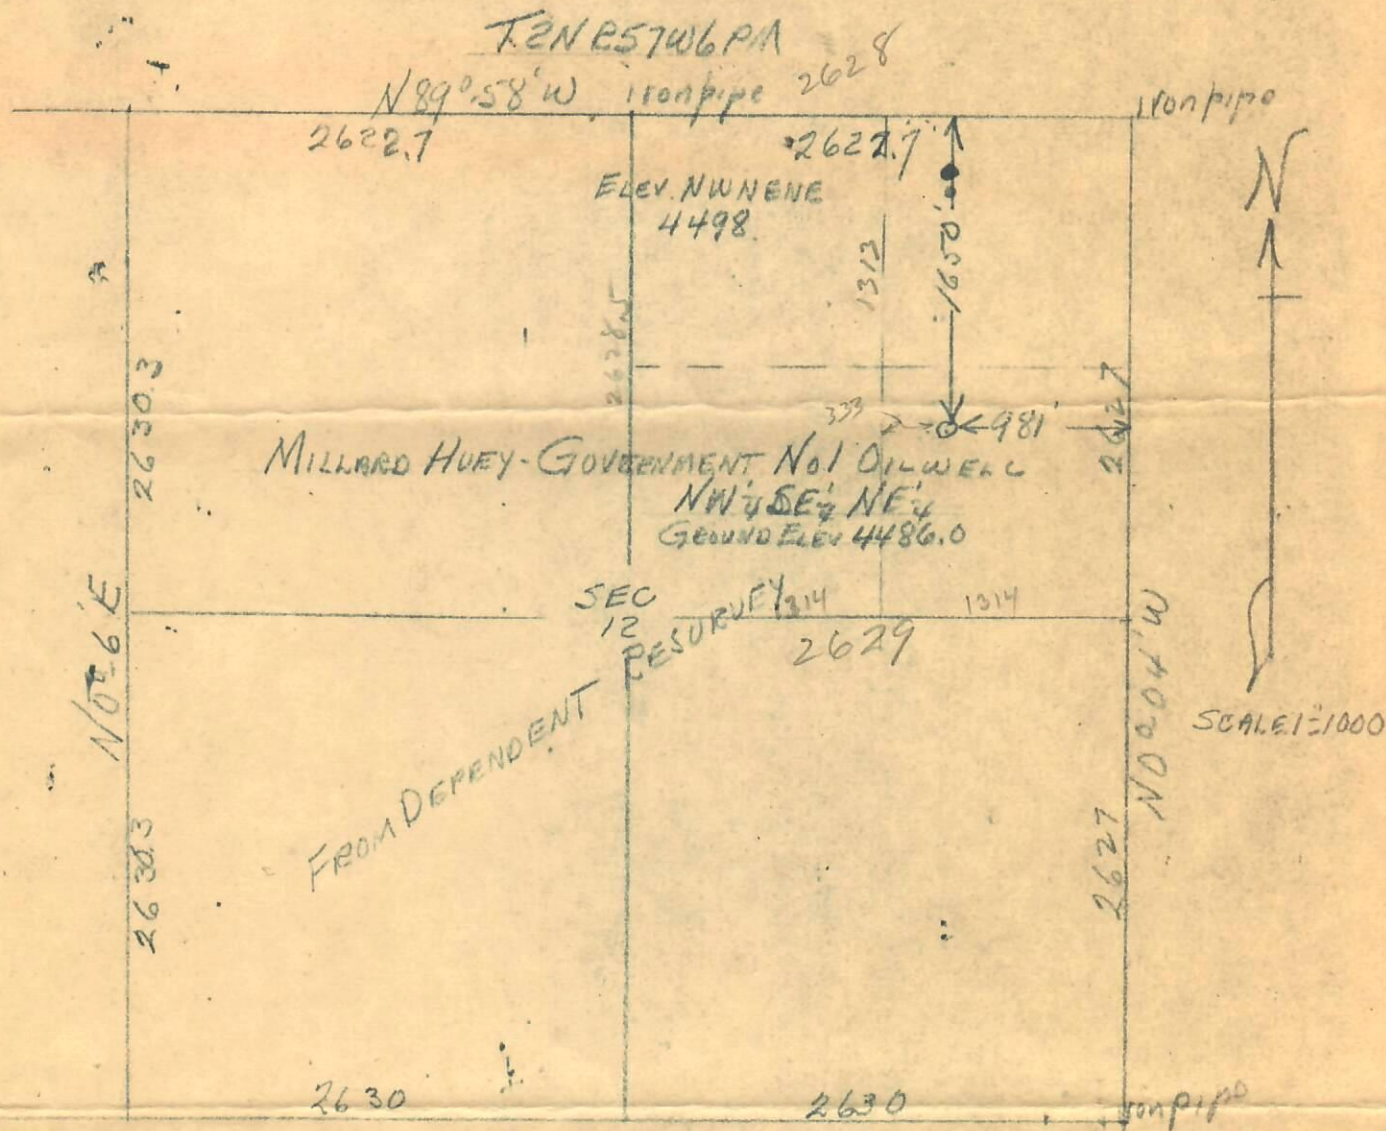 T2N R57W6PM
N89°58'W Ironpipe 2628
Ironpipe
2622.7
2622.7
N
ELEV. NWNENE
4498.
1313
1650'
2628.5
2630.3
2627
333
981'
MILLARD HUEY-GOVERNMENT No1 OILWELL
NW¼SE¼NE¼
GROUND ELEV 4486.0
N0°6'E
SEC
12
1314
1314
2629
FROM DEPENDENT RESURVEY
N0°04'W
SCALE 1"=1000
2630.3
2627
2630
2630
Ironpipe